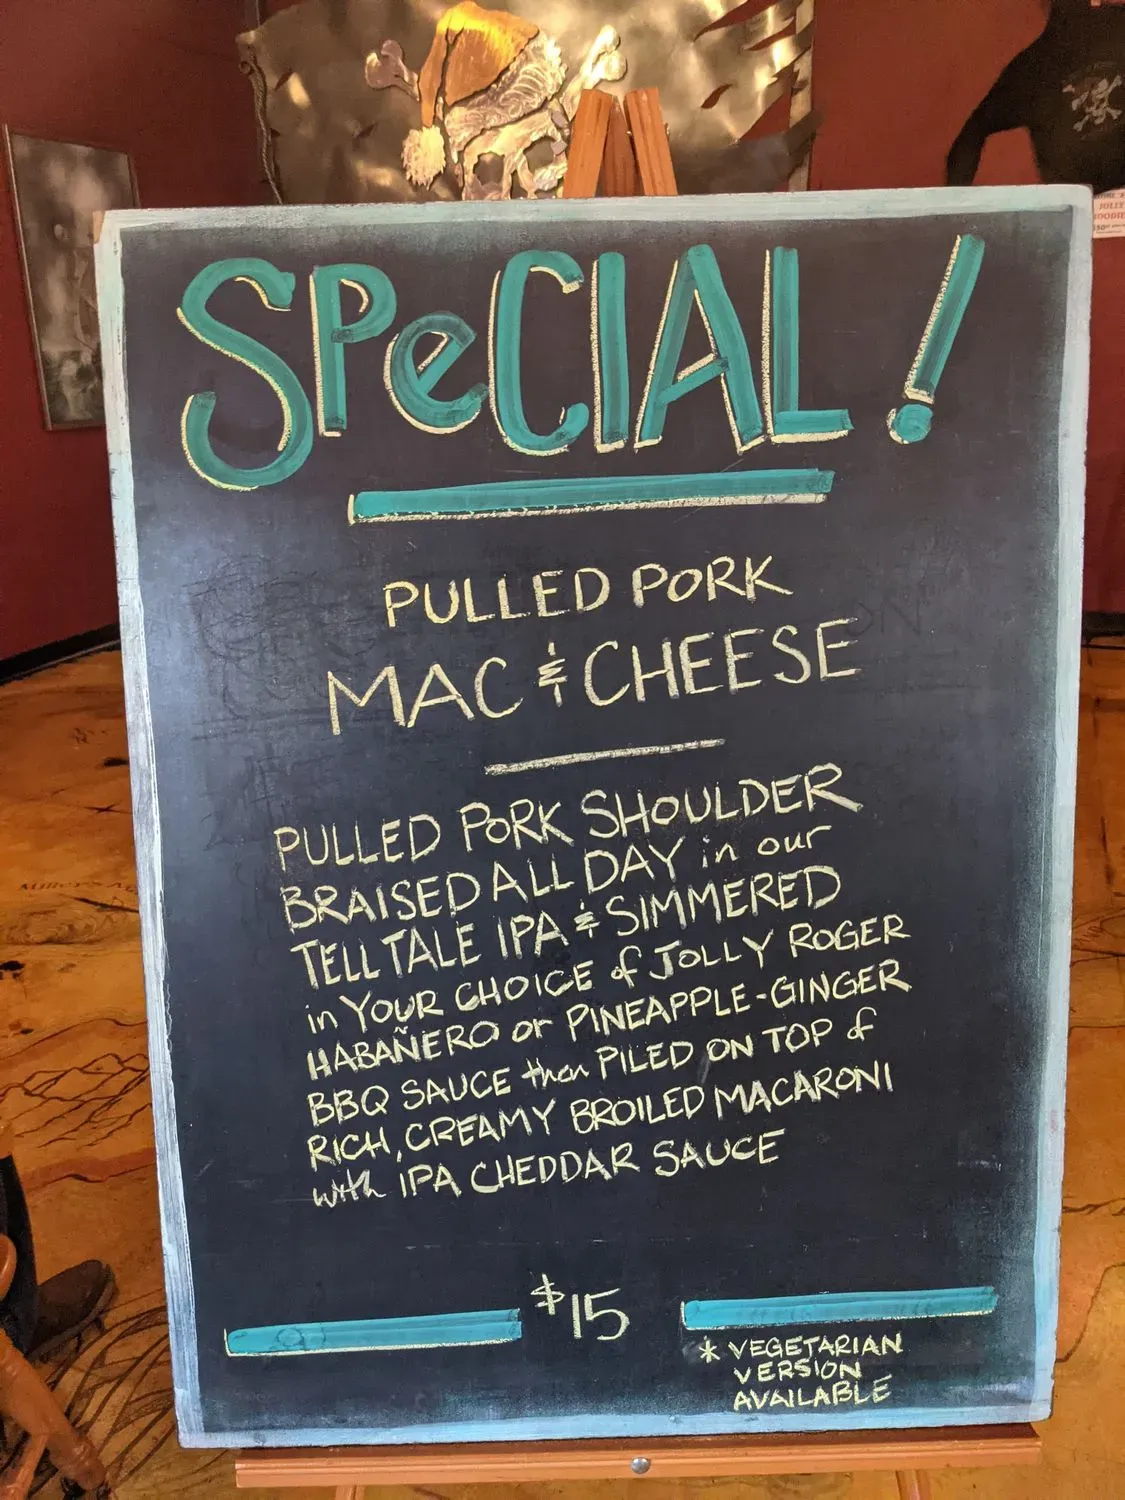 SPeCIAL!
PULLED PORK
MAC & CHEESE
PULLED PORK SHOULDER
BRAISED ALL DAY in our
TELL TALE IPA & SIMMERED
in YOUR CHOICE of JOLLY ROGER
HABAÑERO or PINEAPPLE-GINGER
BBQ SAUCE then PILED ON TOP of
RICH, CREAMY BROILED MACARONI
with IPA CHEDDAR SAUCE
$15
* VEGETARIAN
VERSION
AVAILABLE
JOLLY